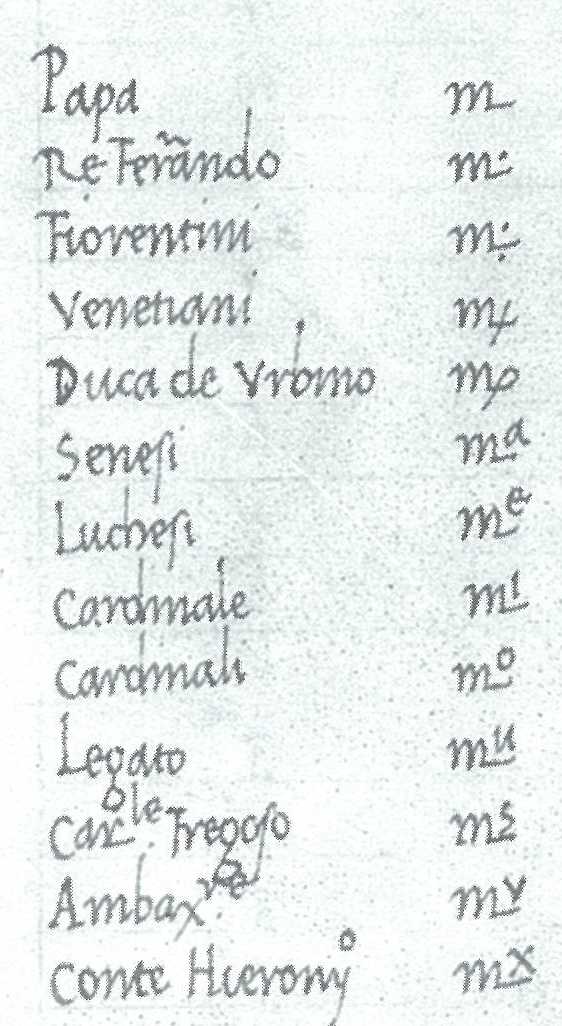 Papa m
Re Ferãndo m
Fiorentini m
Venetiani m
Duca de Vrbino m
Senesi mᵃ
Luchesi mᵉ
Cardinale mⁱ
Cardinali mᵒ
Legato mᵘ
Carˡᵉ Fregoso mˢ
Ambaxʳᵉ mᵛ
Conte Hieronyᵒ mˣ